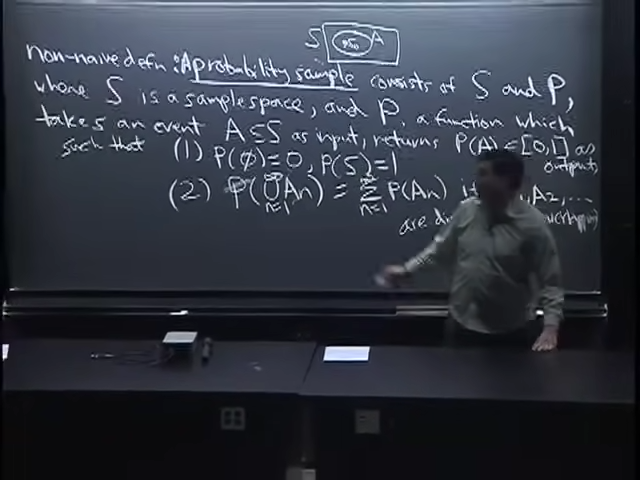 S A
non-naive defn: A probability sample consists of S and P,
where S is a sample space, and P, a function which
takes an event A ⊆ S as input, returns P(A) ∈ [0,1] as
such that (1) P(∅) = 0, P(S) = 1 output
(2) P(∪ n=1 ∞ An) = Σ n=1 ∞ P(An) if A2, ...
are